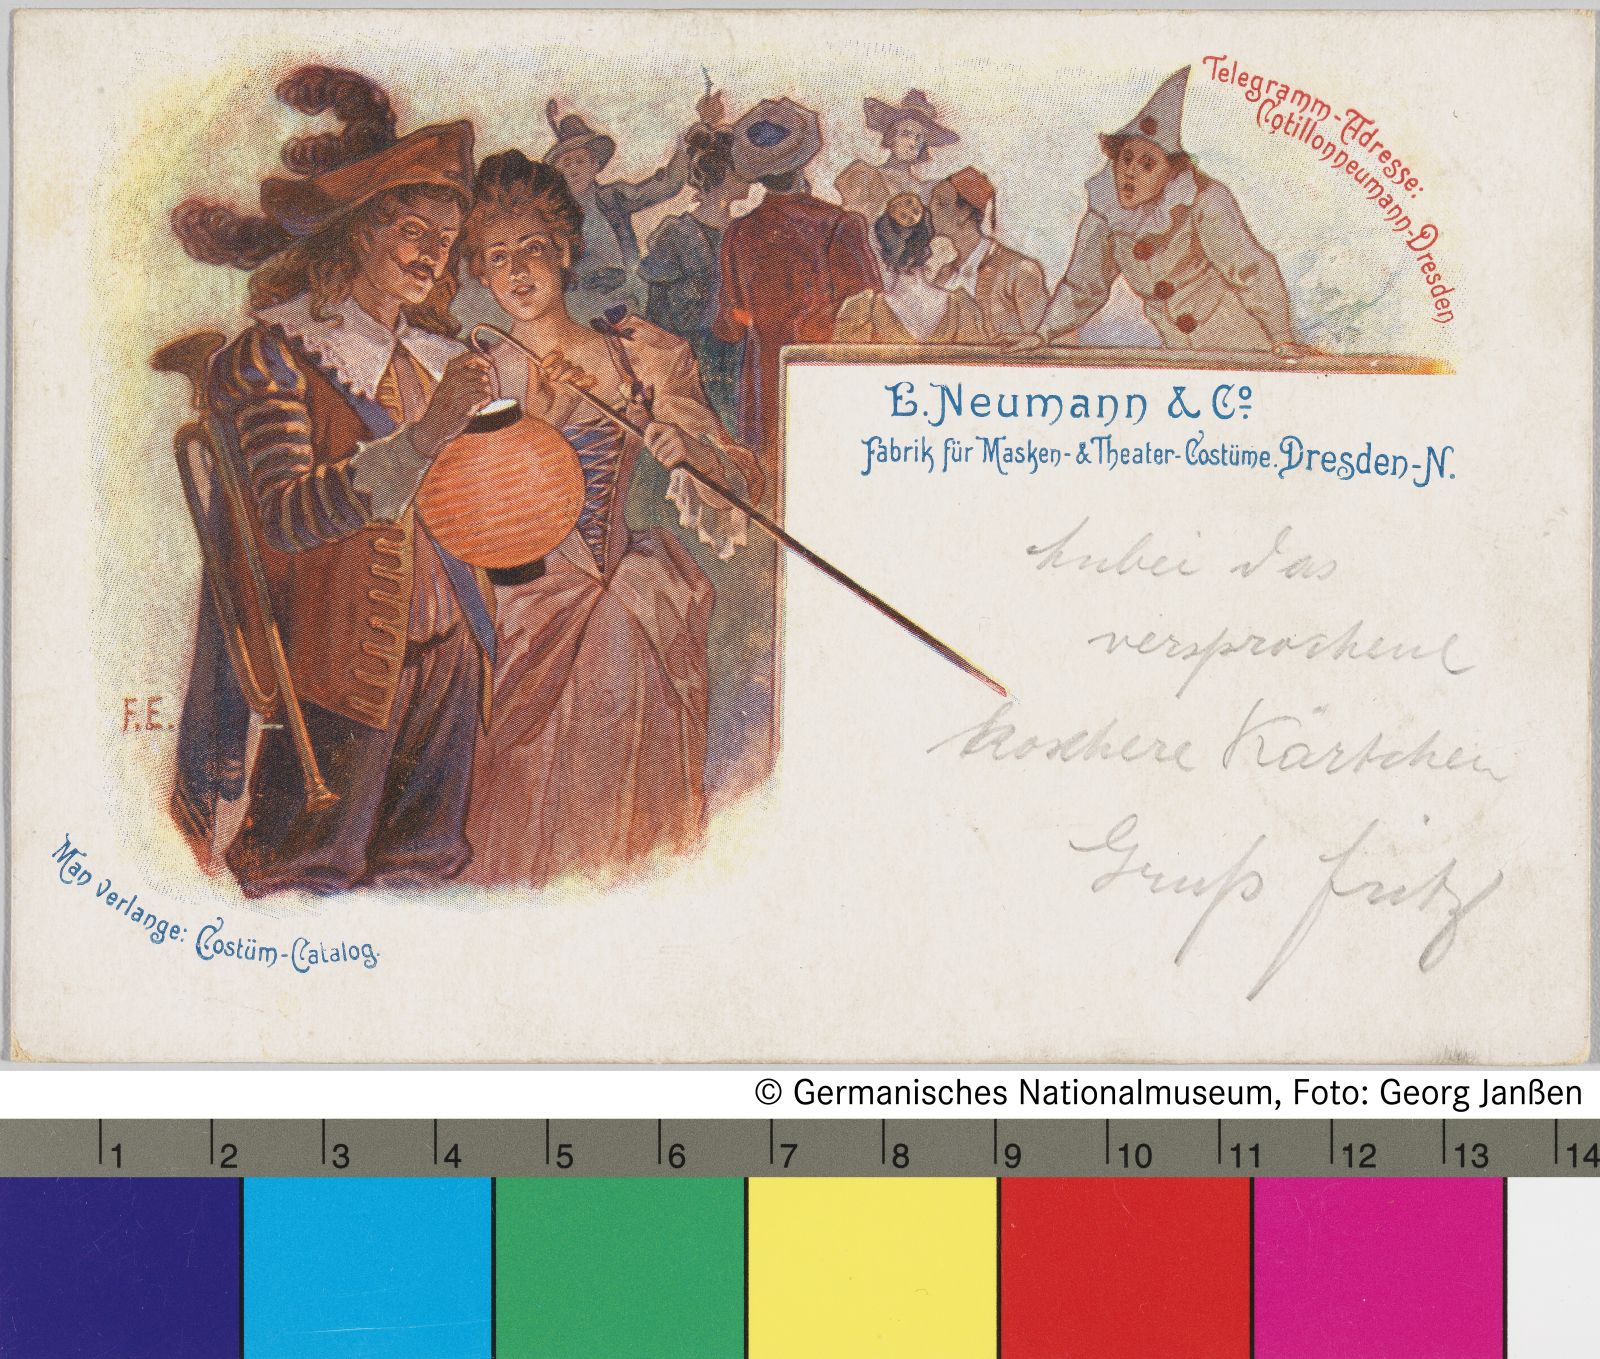 Telegramm-Adresse:
Cotillonneumann-Dresden
E. Neumann & Co.
Fabrik für Masken- & Theater-Costüme. Dresden-N.
Anbei das
versprochene
koschere Kärtchen
Gruß Fritz
F.E.
Man verlange: Costüm-Catalog.
© Germanisches Nationalmuseum, Foto: Georg Janßen
1 2 3 4 5 6 7 8 9 10 11 12 13 14